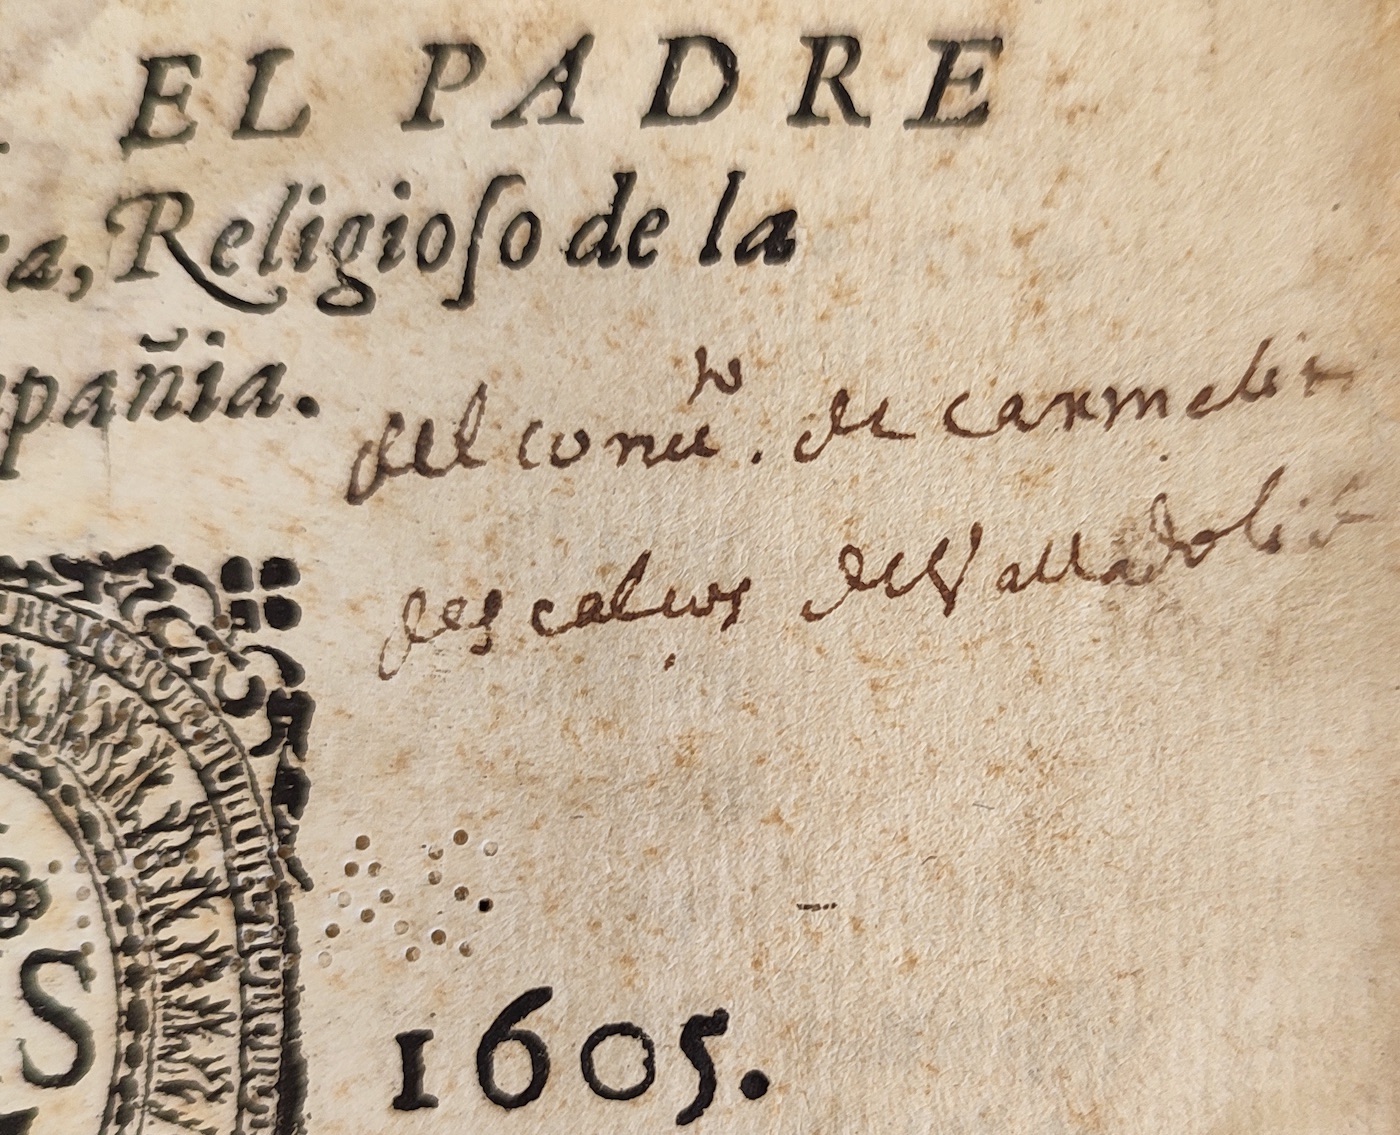 EL PADRE
a, Religioſo de la
pañia.
del conuto. de carmelit
descalços de Valladolid
S
1605.